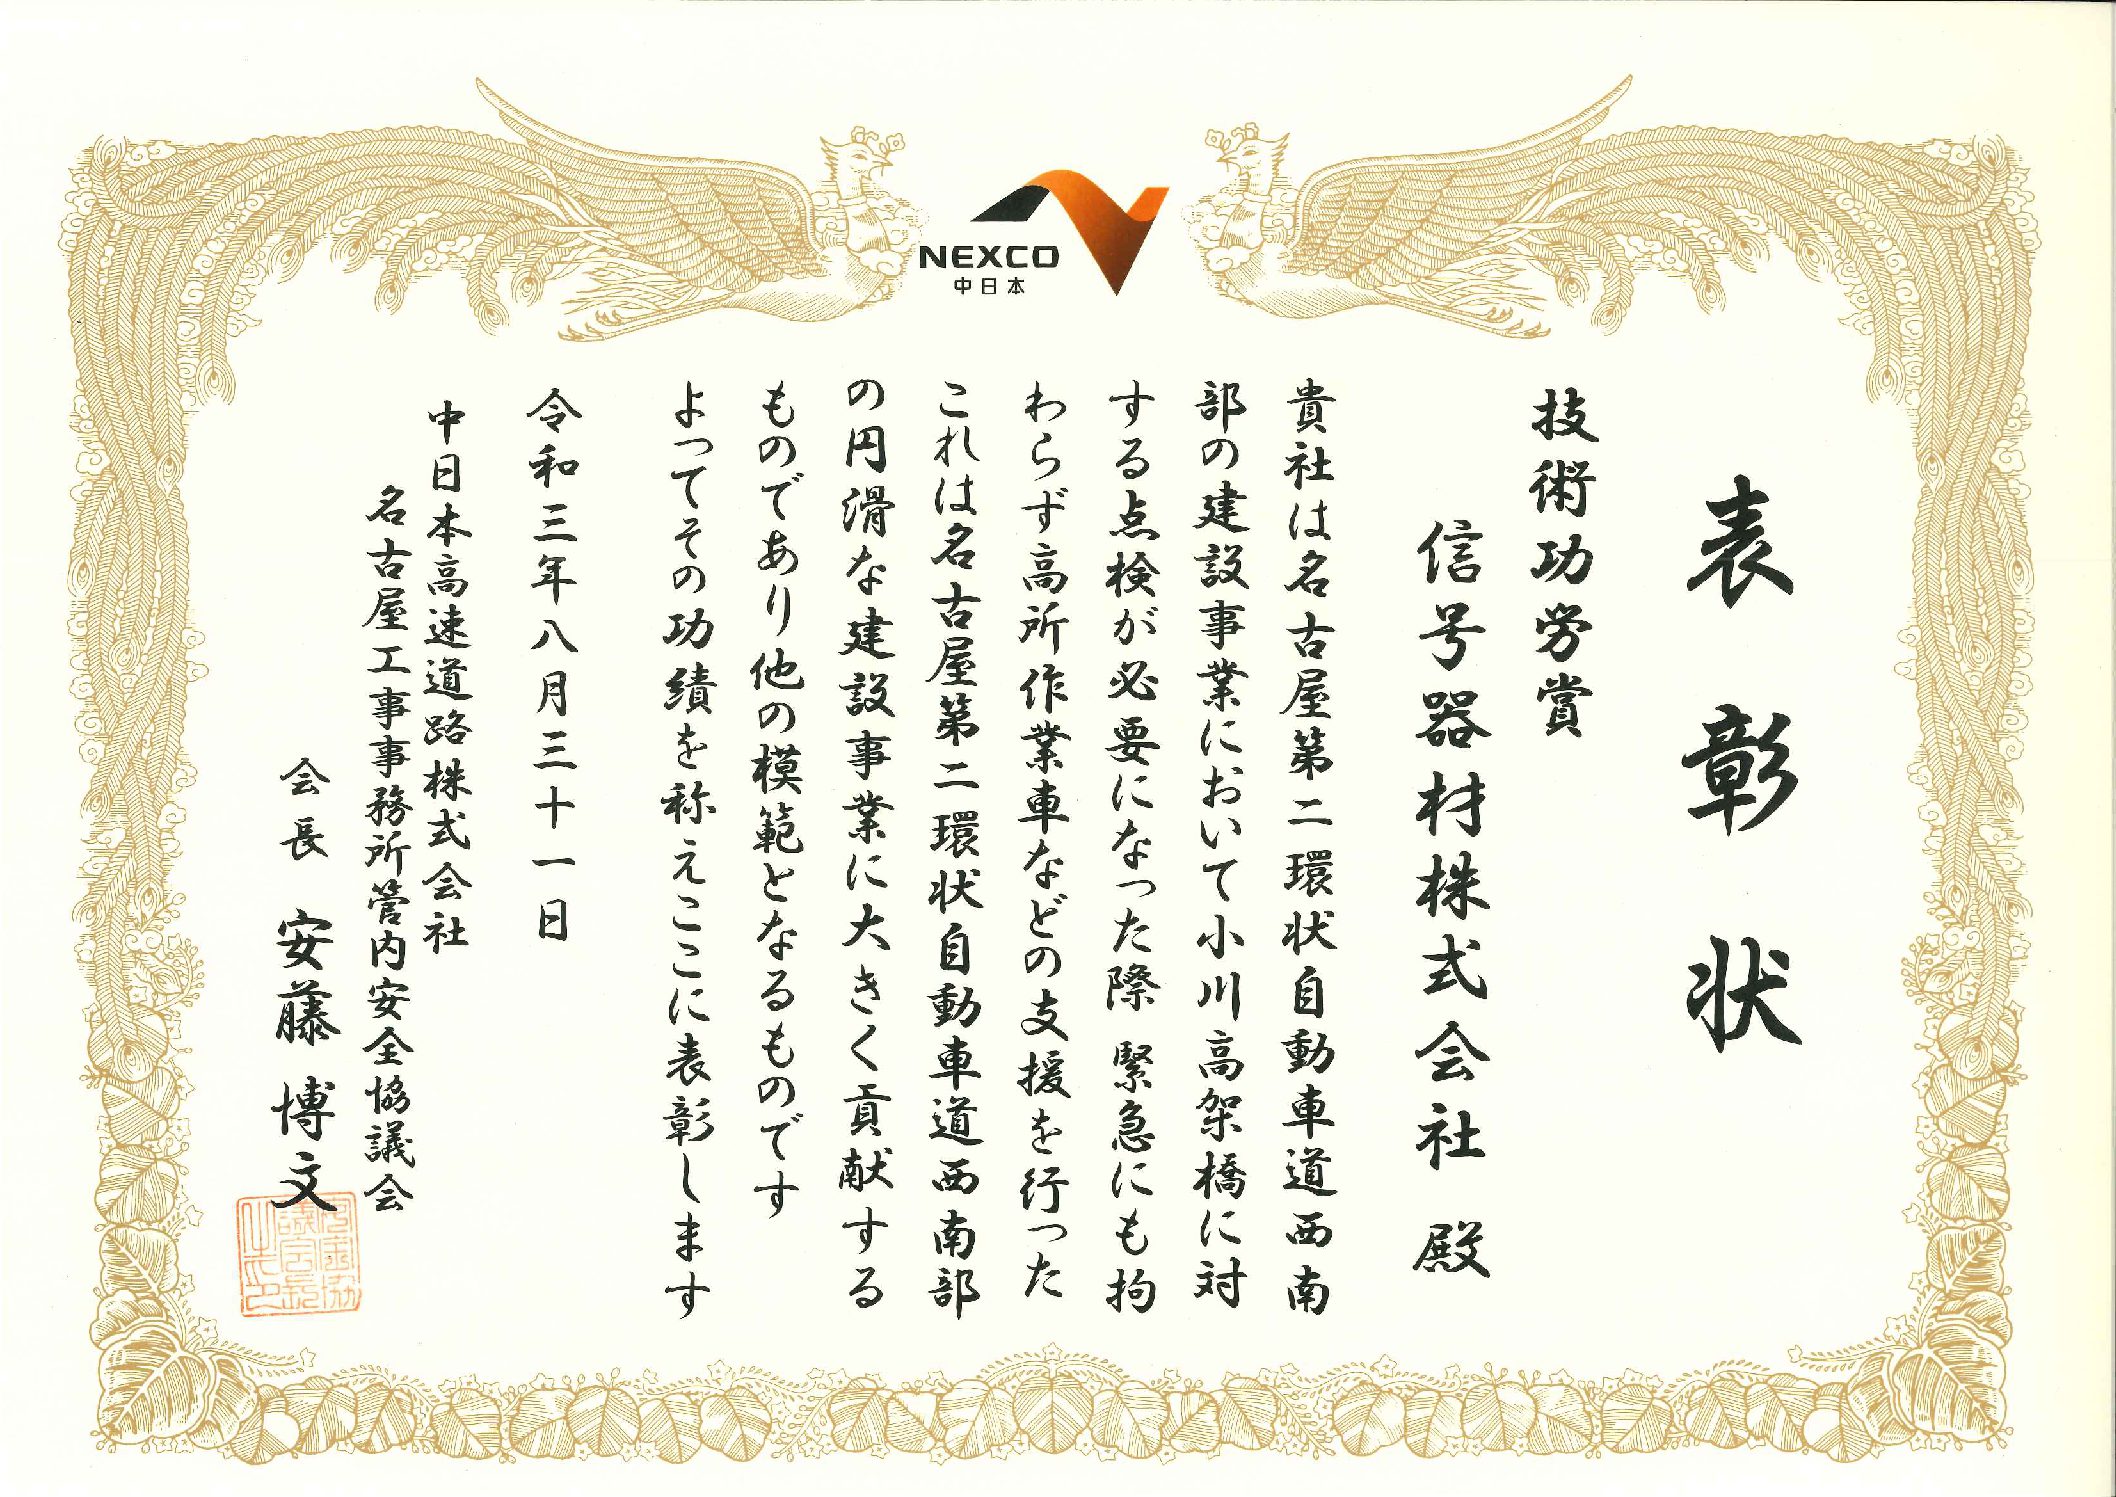 NEXCO
中日本
表彰状
技術功労賞
信号器材株式会社 殿
貴社は名古屋第二環状自動車道西南
部の建設事業において小川高架橋に対
する点検が必要になった際 緊急にも拘
わらず高所作業車などの支援を行った
これは名古屋第二環状自動車道西南部
の円滑な建設事業に大きく貢献する
ものであり他の模範となるものです
よってその功績を称えここに表彰します
令和三年八月三十一日
中日本高速道路株式会社
名古屋工事事務所管内安全協議会
会長 安藤 博文